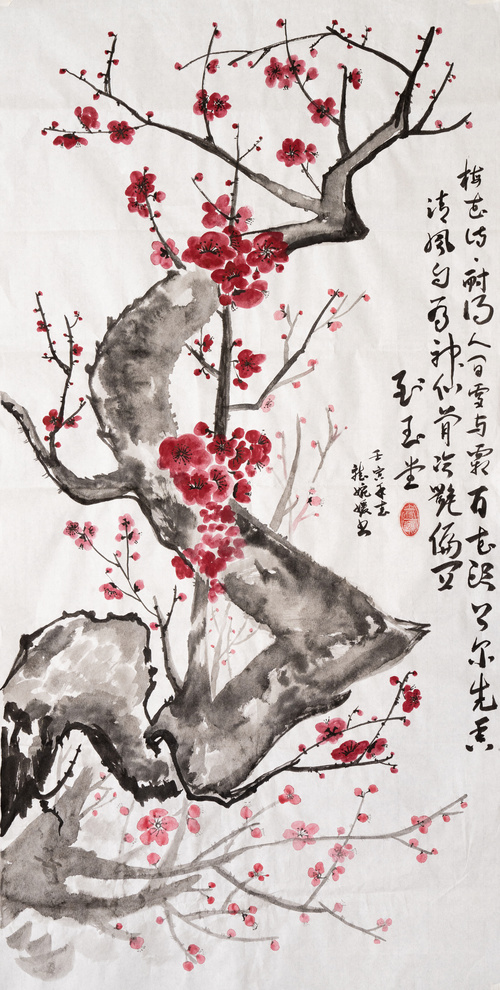 梅花诗·耐得人间雪与霜百花头上尔先香
清風自有神仙骨冷艷偏宜
到玉堂
壬寅年